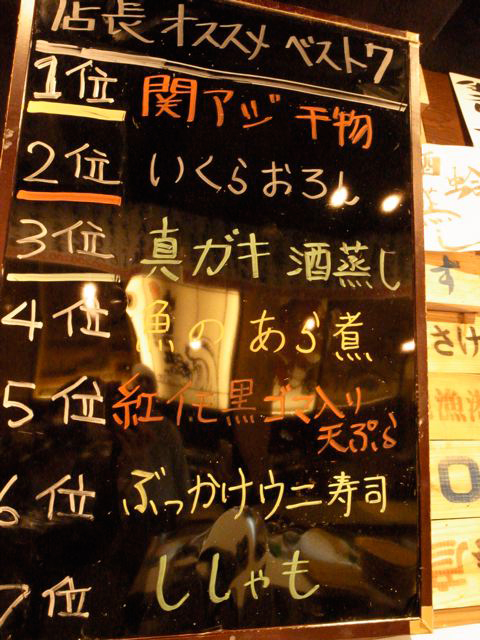 店長オススメベスト7
1位 関アジ干物
2位 いくらおろし
3位 真ガキ酒蒸し
4位 魚のあら煮
5位 紅イモ黒ゴマ入り
天ぷら
6位 ぶっかけウニ寿司
7位 ししゃも
酒蒸し
す
さけ
漁港